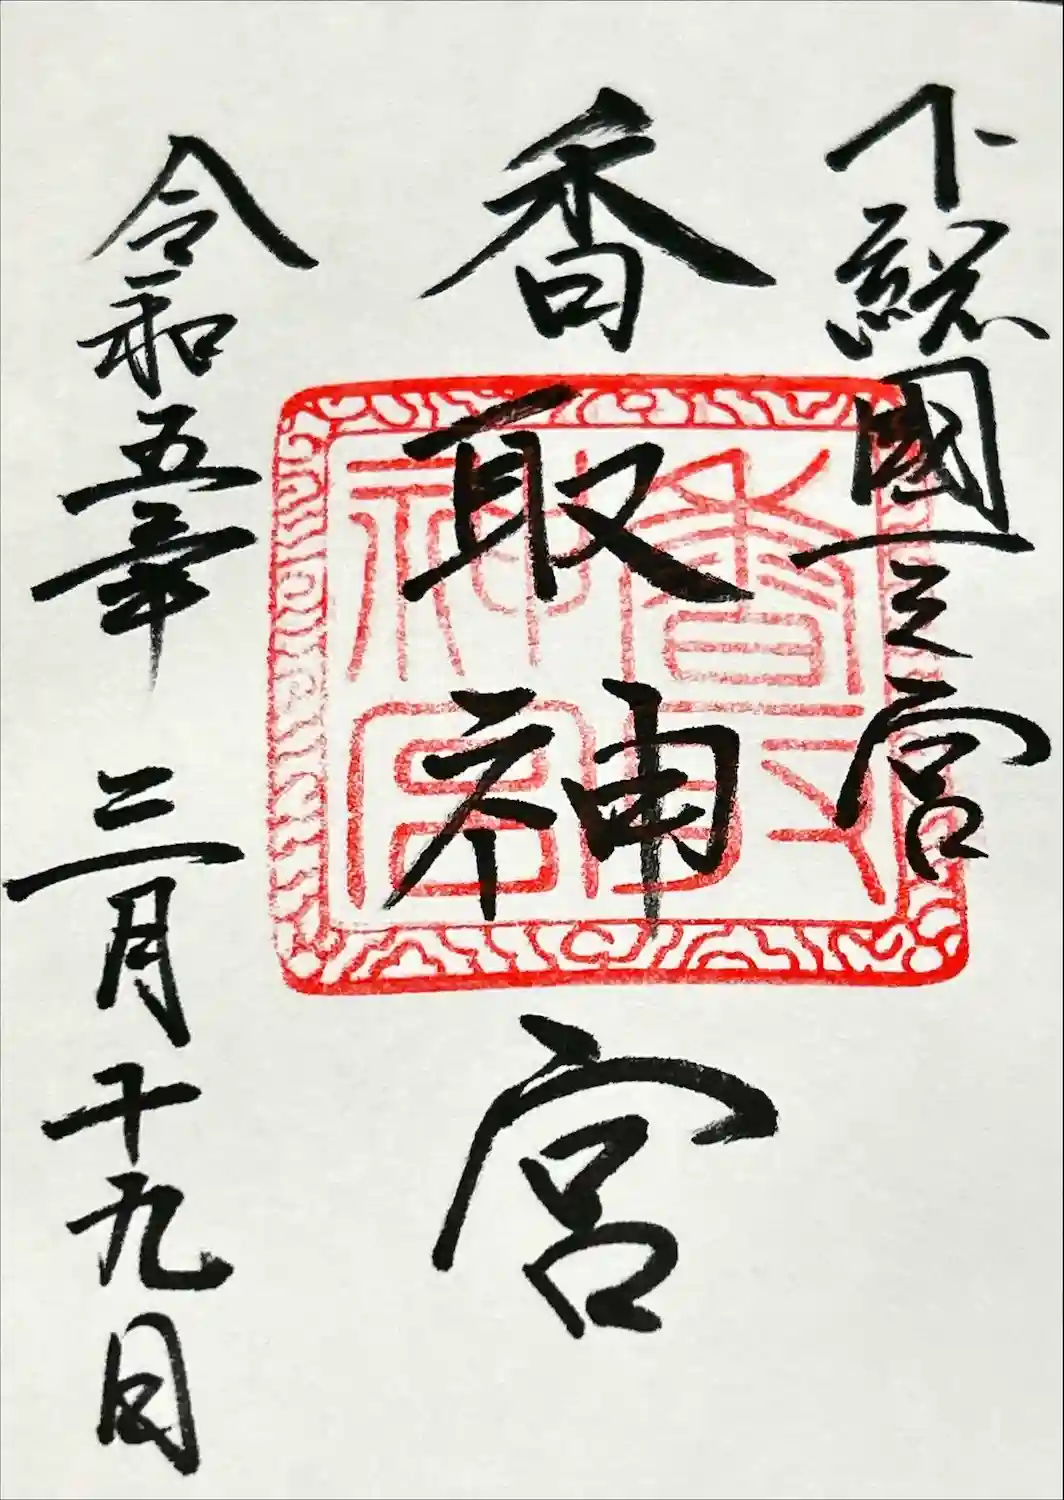 下總國一之宮
香取神宮
香取神宮
令和五年三月十九日